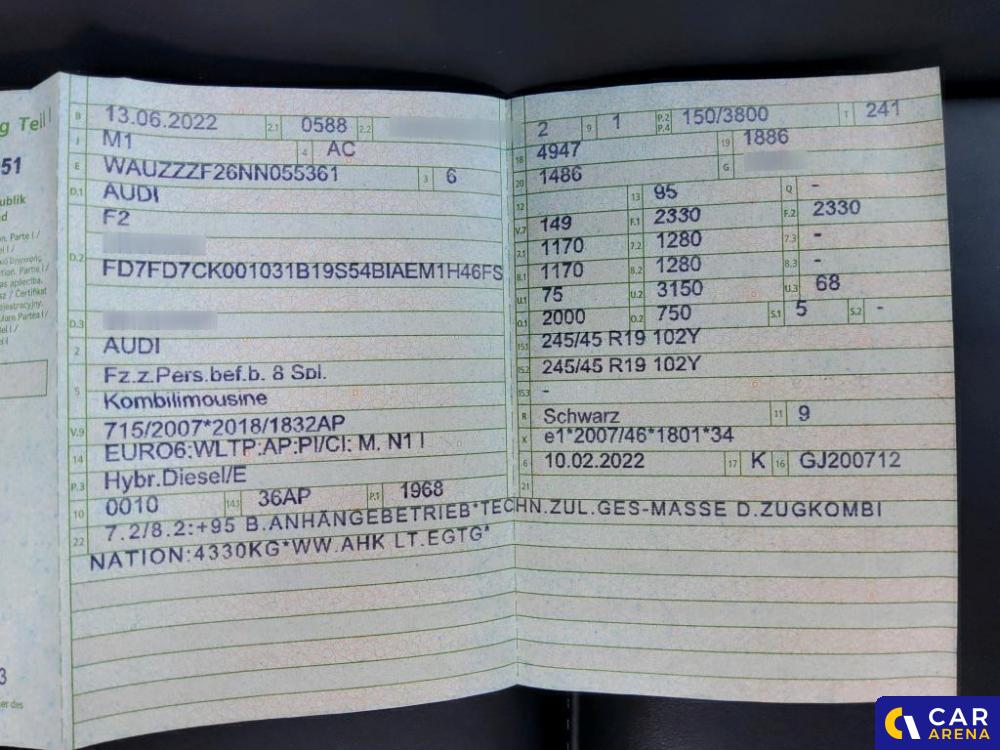 g Teil I
51
ublik
d
B 13.06.2022 2.1 0588 2.2
J M1 4 AC
E WAUZZZF26NN055361 3 6
D.1 AUDI
F2
D.2 FD7FD7CK001031B19S54BIAEM1H46FS
D.3
2 AUDI
5 Fz.z.Pers.bef.b. 8 Spl.
Kombilimousine
V.9 715/2007*2018/1832AP
14 EURO6:WLTP:AP:PI/CI: M, N1 I
P.3 Hybr.Diesel/E
10 0010 14.1 36AP P.1 1968
22 7.2/8.2:+95 B.ANHÄNGEBETRIEB*TECHN.ZUL.GES-MASSE D.ZUGKOMBI
NATION:4330KG*WW.AHK LT.EGTG*
2 9 1 P.2 P.4 150/3800 T 241
18 4947 19 1886
20 1486 G
12 13 95 Q -
V.7 149 F.1 2330 F.2 2330
7.1 1170 7.2 1280 7.3 -
8.1 1170 8.2 1280 8.3 -
U.1 75 U.2 3150 U.3 68
O.1 2000 O.2 750 S.1 5 S.2 -
15.1 245/45 R19 102Y
15.2 245/45 R19 102Y
15.3 -
R Schwarz 11 9
K e1*2007/46*1801*34
6 10.02.2022 17 K 16 GJ200712
21
3
er des
CAR
ARENA